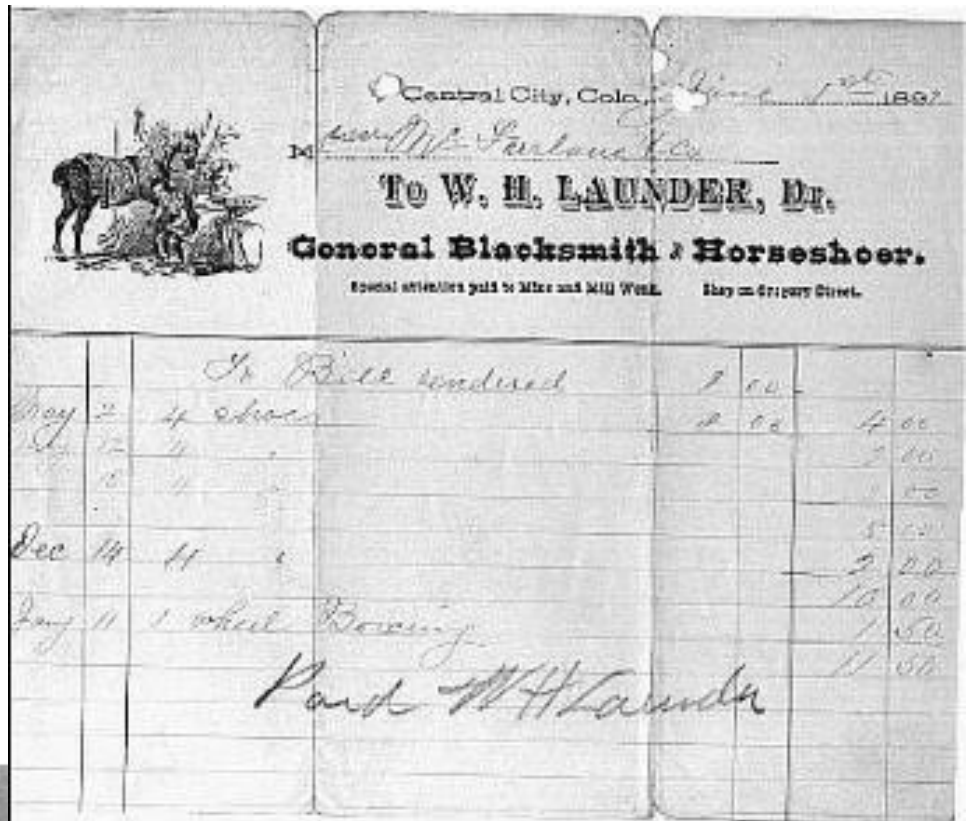 Central City, Colo, June 1st 1897
M Mc Farlane & Co
To W. H. LAUNDER, Dr.
General Blacksmith & Horseshoer.
Special attention paid to Mine and Mill Work. Shop on Gregory Street.
To Bill rendered 00
2 4 shoes 00 4 00
12 4 " 00
4 " 00
5 00
Dec 14 4 " 2 00
10 00
11 1 wheel 1 50
11 50
Paid W H Launder